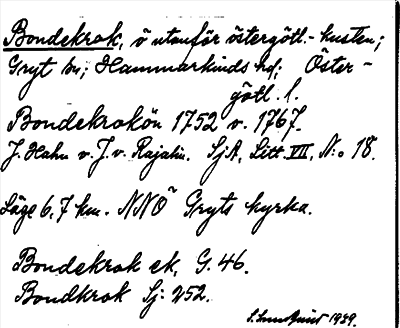 Bondekrok, ö utanför östergötl.-kusten;
Gryt sn; Hammarkinds hd; Öster-
götl. l.
Bondekrokön 1752 o. 1767.
J. Hahn o. J. v. Rajalin. SjA, Litt. VII, N:o 18.
Läge 6,7 km. NNÖ Gryts kyrka.
Bondekrok ek, G. 46.
Bondkrok Sj: 252.
1939.